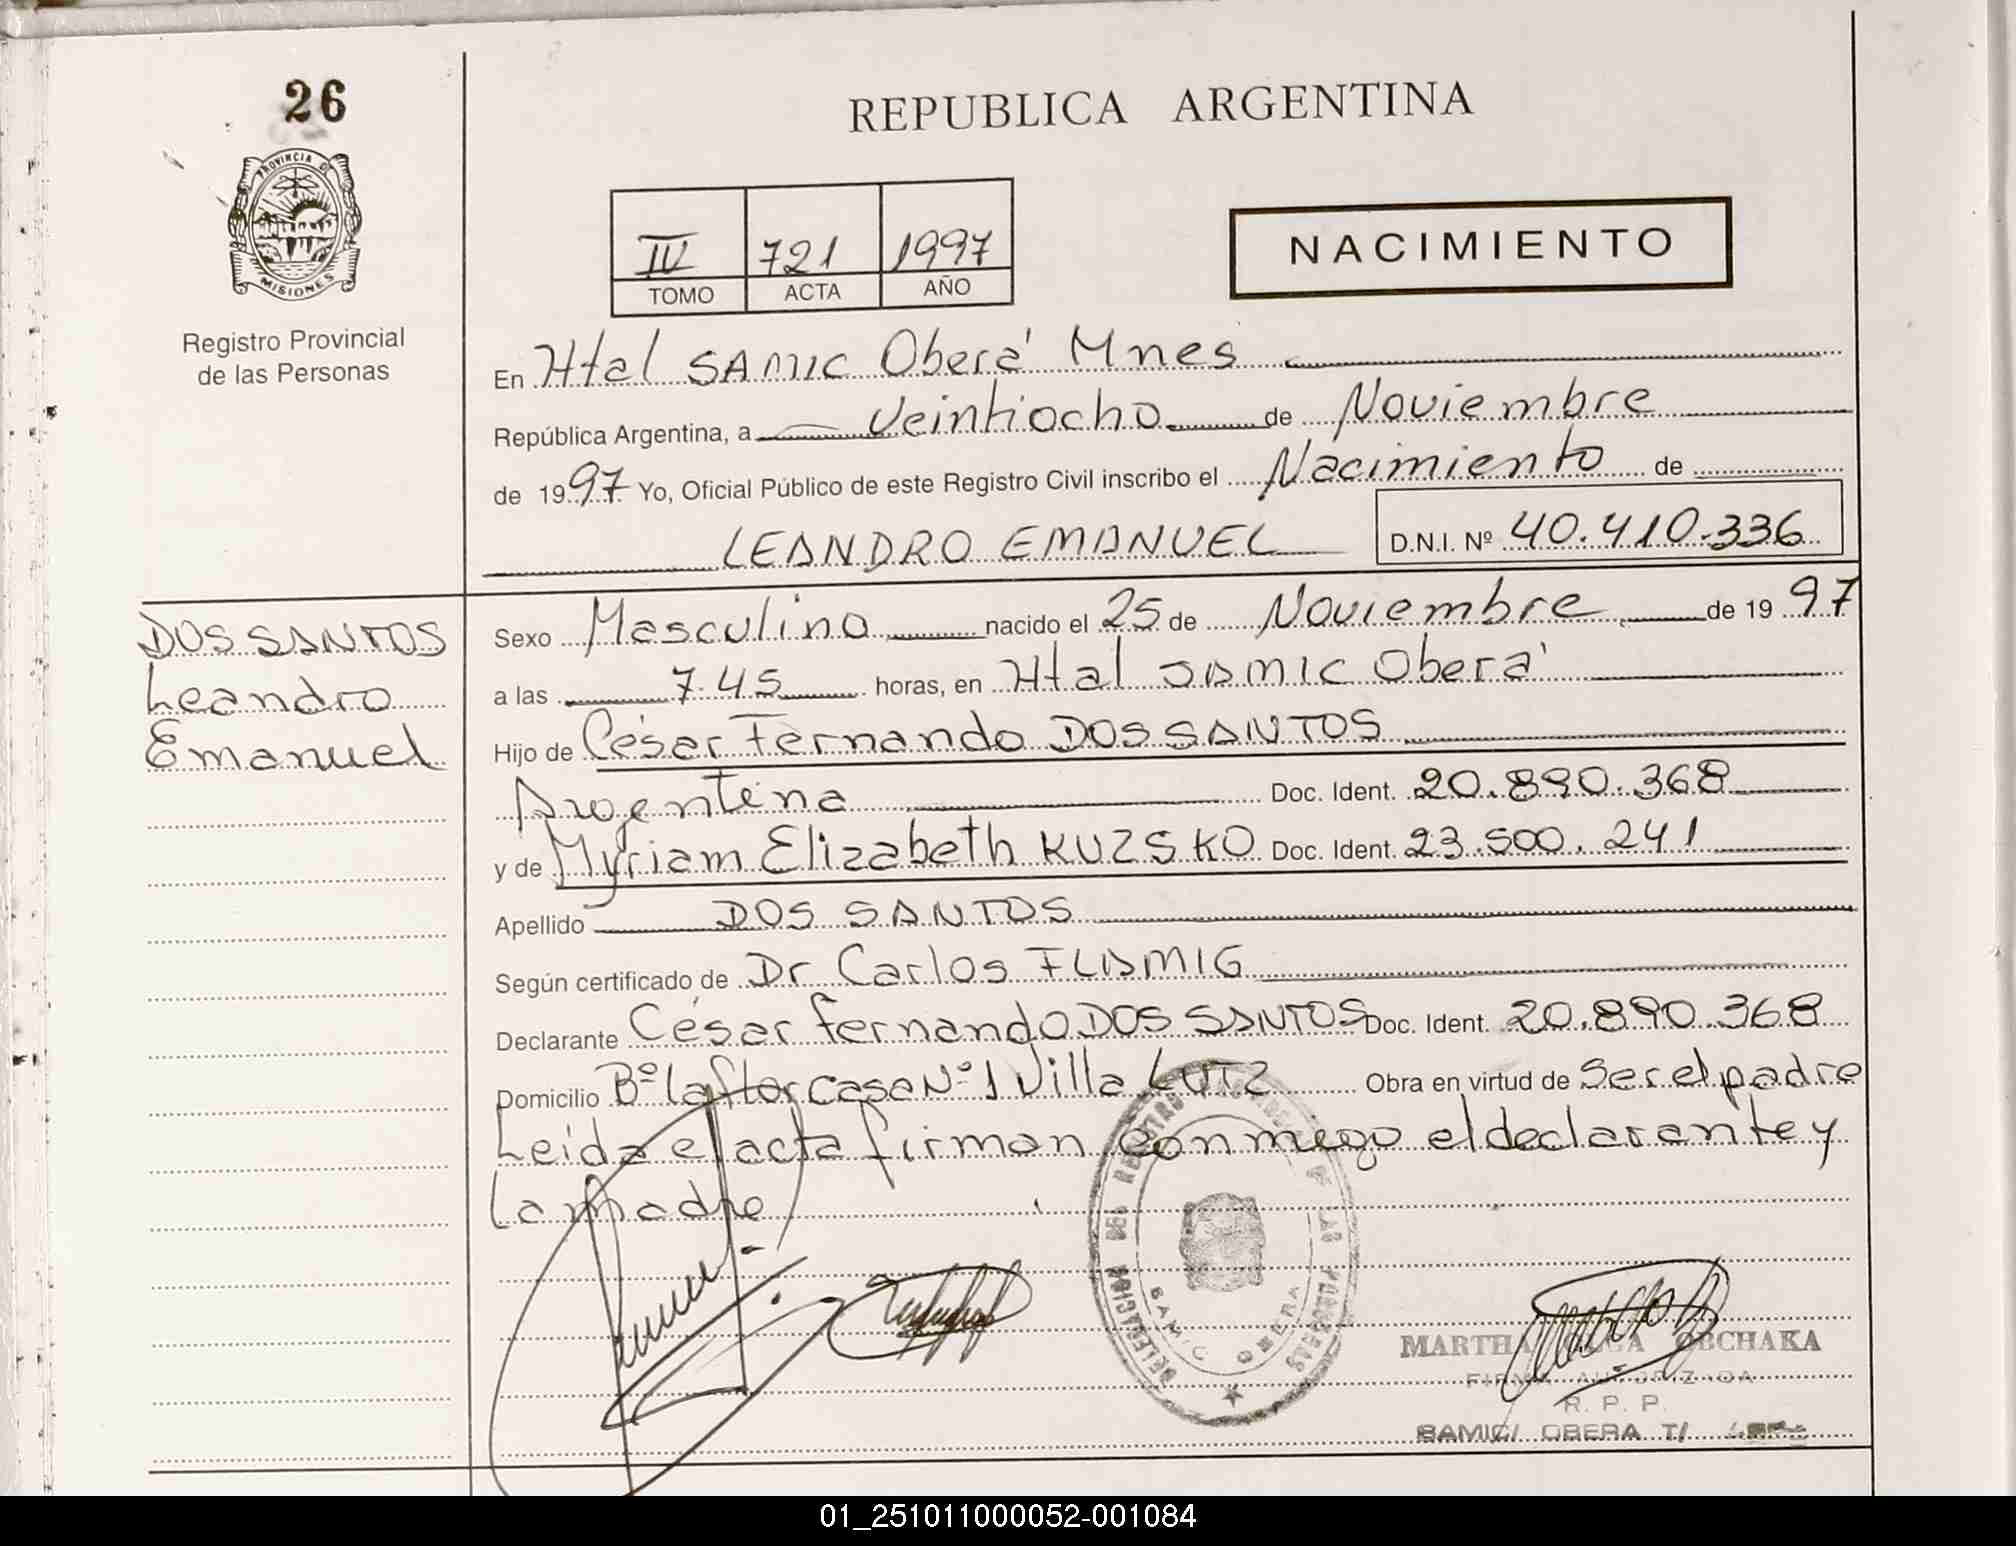 26
PROVINCIA DE
MISIONES
Registro Provincial
de las Personas
REPUBLICA ARGENTINA
IV 721 1997
TOMO ACTA AÑO
NACIMIENTO
En Htal SAMIC Oberá Mnes
República Argentina, a Veintiocho de Noviembre
de 1997 Yo, Oficial Público de este Registro Civil inscribo el Nacimiento de
LEANDRO EMANUEL D.N.I. Nº 40.410.336
DOS SANTOS
Leandro
Emanuel
Sexo Masculino nacido el 25 de Noviembre de 1997
a las 7.45 horas, en Htal SAMIC Oberá
Hijo de César Fernando DOS SANTOS
Argentina Doc. Ident. 20.890.368
y de Myriam Elizabeth KUZSKO Doc. Ident. 23.500.241
Apellido DOS SANTOS
Según certificado de Dr Carlos FLAMIG
Declarante César Fernando DOS SANTOS Doc. Ident. 20.890.368
Domicilio Bº la flor casa Nº 1 Villa LUTZ Obra en virtud de Ser el padre
Leida el acta firman conmigo el declarante y
la Madre
DELEGACION DEL REGISTRO DE LAS PERSONAS
SAMIC OBERA
MARTHA OBCHAKA
FIRMA AUTORIZADA
R. P. P.
SAMIC/ OBERA T/
01_251011000052-001084